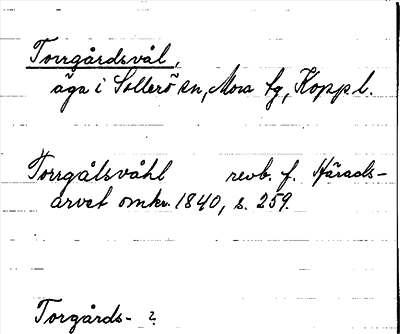 Torrgårdsvål,
äga i Sollerö sn, Mora tg, Kopp.l.
Torrgålsvåhl revb. f. Härads-
arvet omkr. 1840, s. 259.
Torgårds- ?